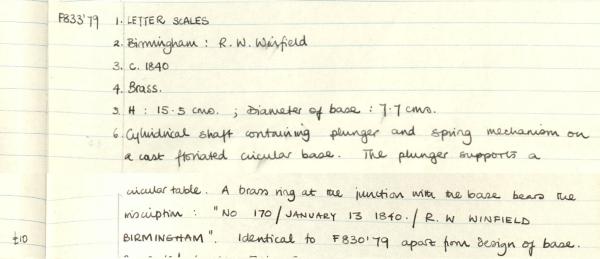 F833'79 1. LETTER SCALES
2. Birmingham : R. W. Winfield
3. c. 1840
4. Brass.
5. H : 15.5 cms. ; Diameter of base : 7.7 cms.
6. Cylindrical shaft containing plunger and spring mechanism on
a cast floriated circular base. The plunger supports a
circular table. A brass ring at the junction with the base bears the
inscription : "NO 170 / JANUARY 13 1840. / R. W WINFIELD
£10 BIRMINGHAM". Identical to F830'79 apart from design of base.